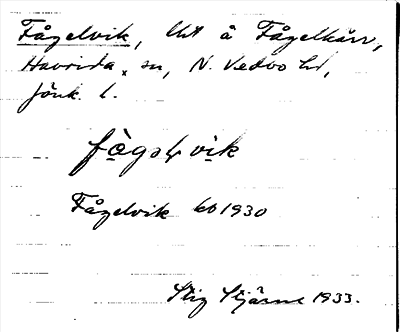 Fågelvik, lht å Fågelkärr,
Havrida × sn, N. Vedbo hd,
Jönk. l.
fågəɫvik
Fågelvik kb 1930
Stig Stjärne 1933.